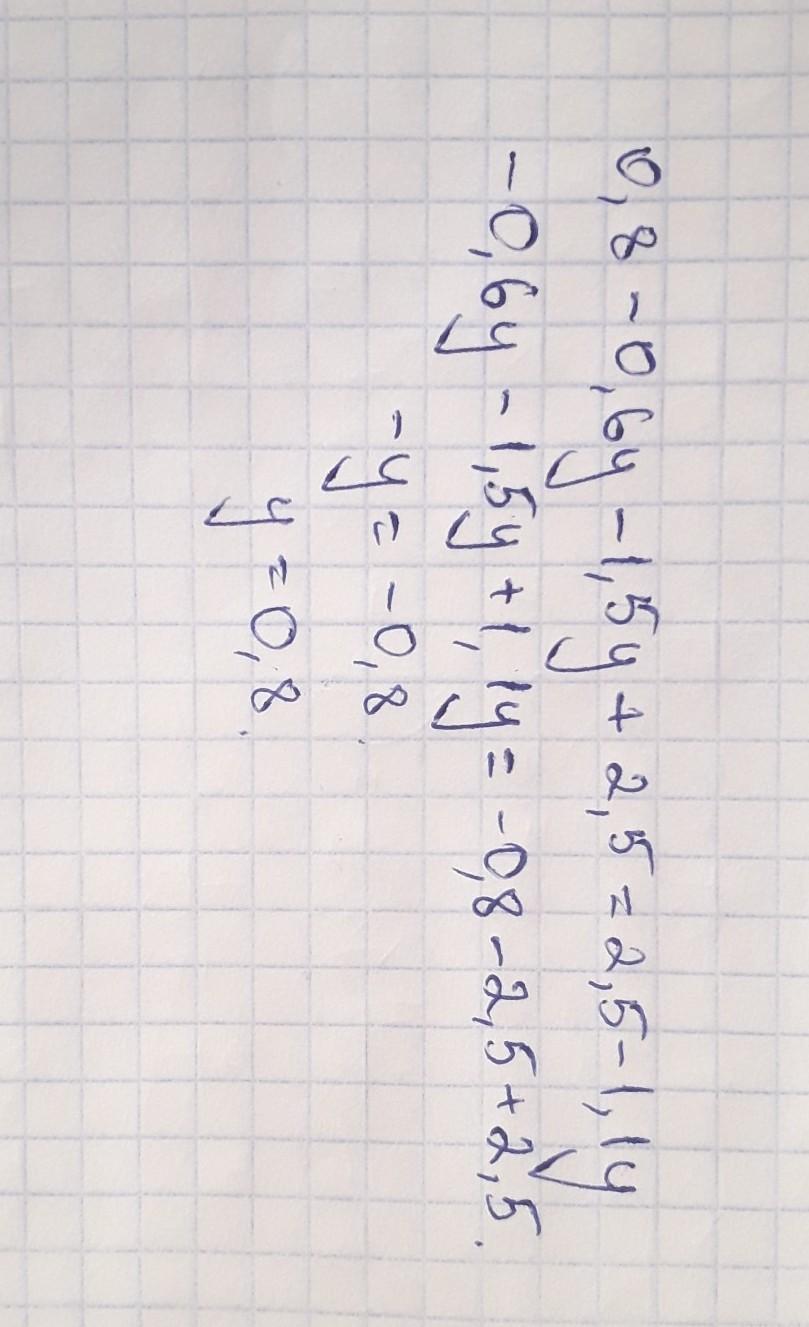 0,8 - 0,6y - 1,5y + 2,5 = 2,5 - 1,1y
- 0,6y - 1,5y + 1,1y = - 0,8 - 2,5 + 2,5.
- y = - 0,8.
y = 0,8.